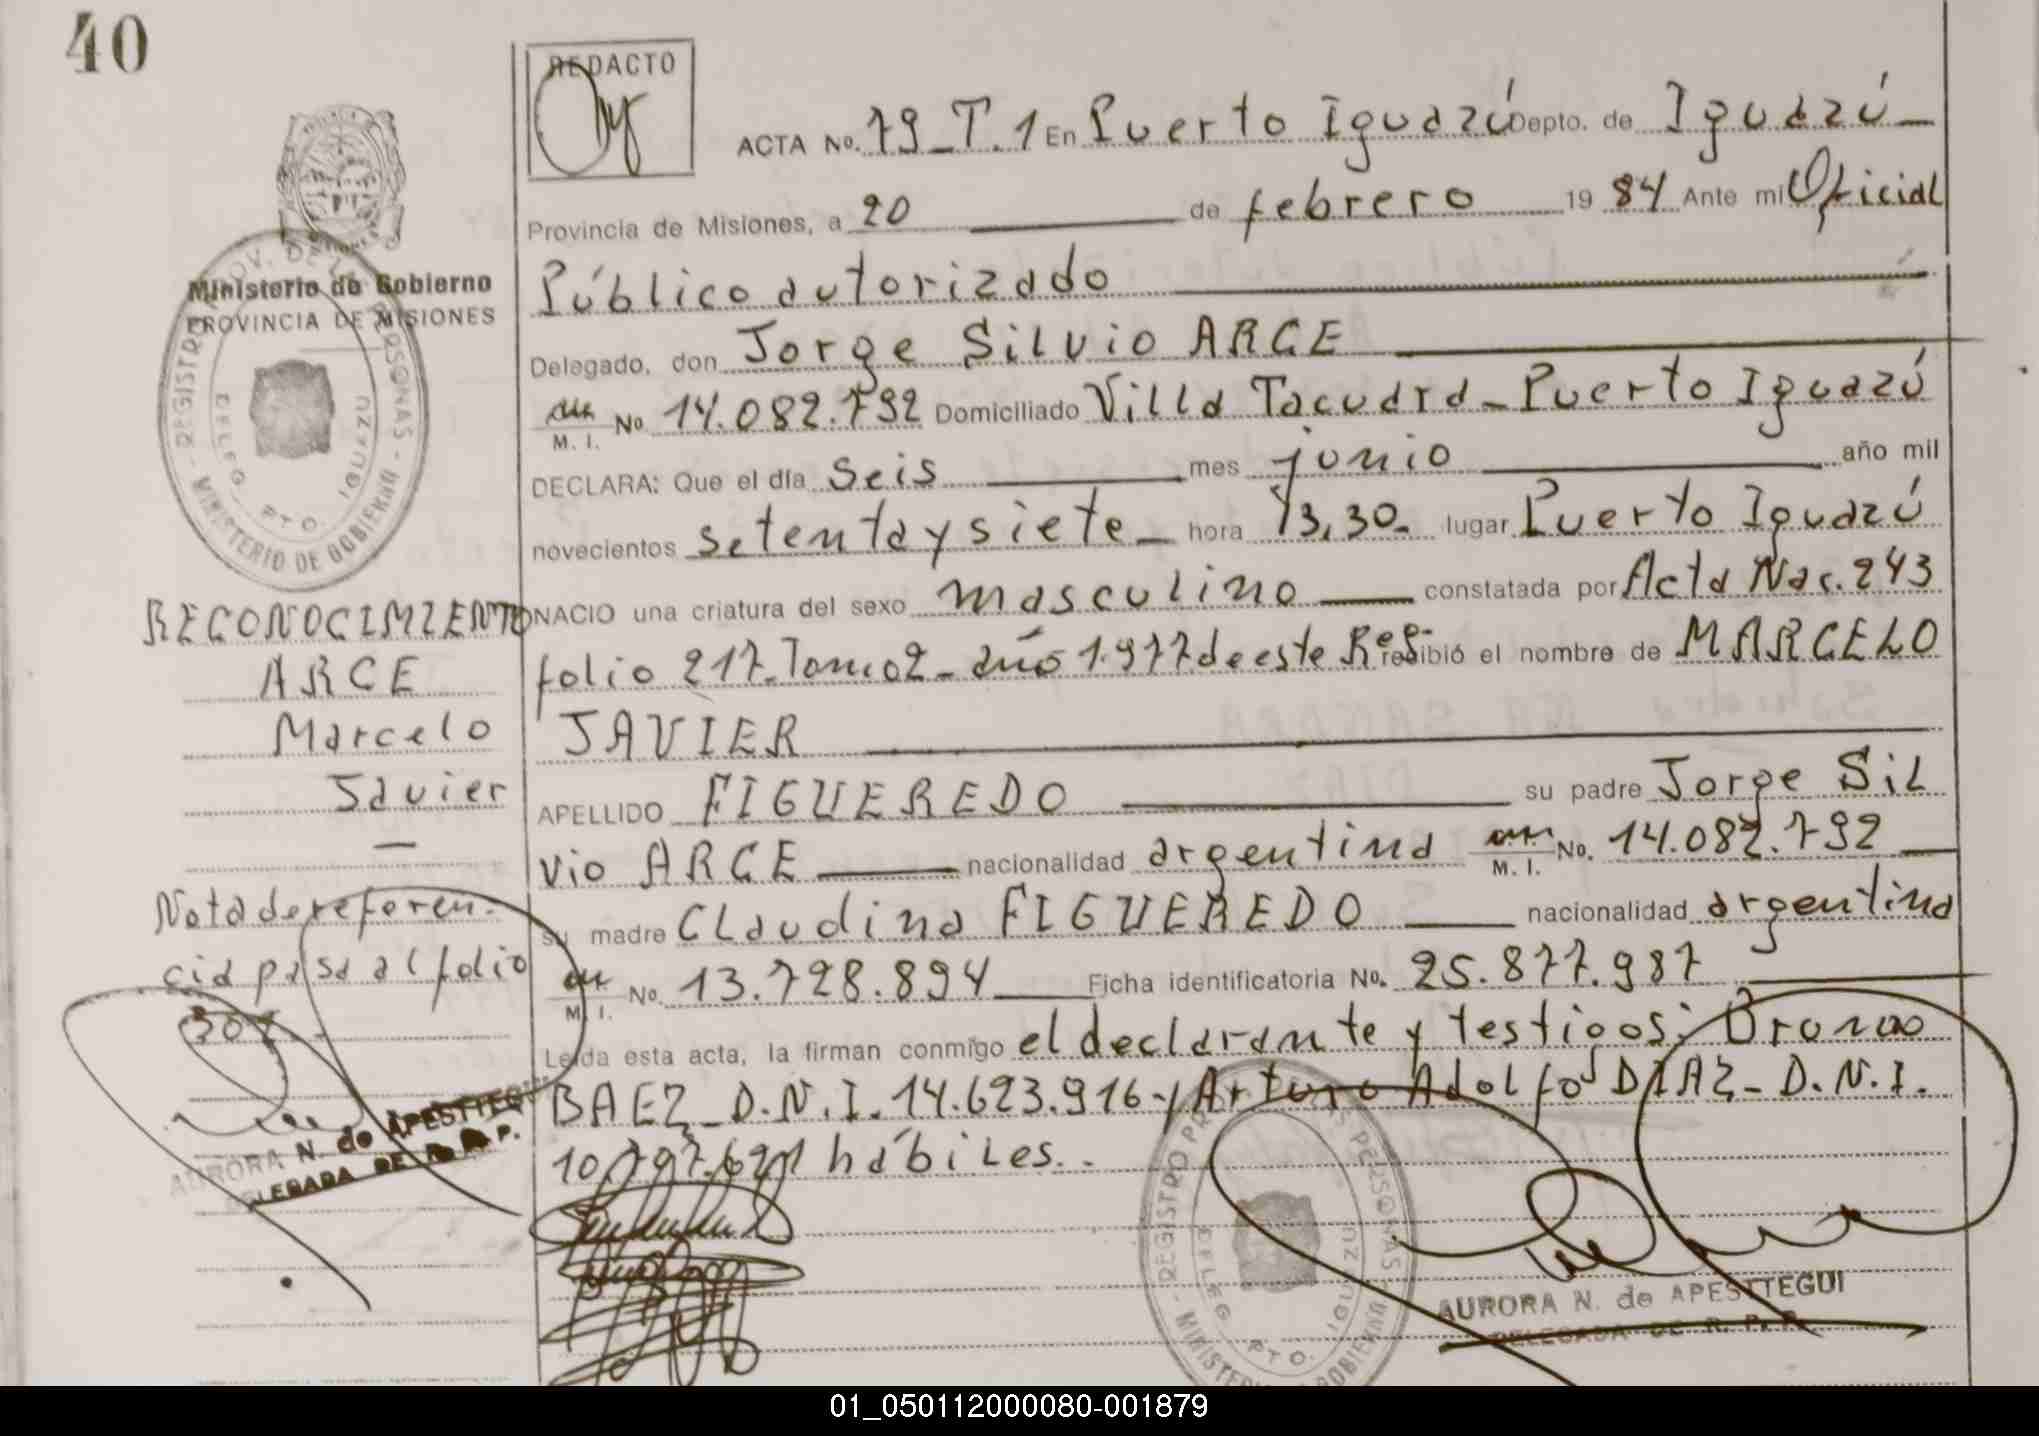 40
REDACTO
ACTA No. 79_T.1 En Puerto Iguazú Depto. de Iguazú_
Provincia de Misiones, a 20 de febrero 19 84 Ante mi Oficial
Público autorizado
Delegado, don Jorge Silvio ARCE
M. I. No 14.082.792 Domiciliado Villa Tacuara_Puerto Iguazú
DECLARA: Que el día seis mes junio año mil
novecientos setenta y siete_ hora 13,30_ lugar Puerto Iguazú
NACIO una criatura del sexo masculino constatada por Acta Nac. 243
folio 217_Tomo 2_año 1.977 de este Reg. recibió el nombre de MARCELO
JAVIER
APELLIDO FIGUEREDO su padre Jorge Sil
vio ARCE nacionalidad argentina M. I. No. 14.082.792
su madre Claudina FIGUEREDO nacionalidad argentina
M. I. No. 13.728.894 Ficha identificatoria No. 25.877.987
Leída esta acta, la firman conmigo el declarante y testigos:
BAEZ_D.N.I. 14.623.916 y Arturo Adolfo DIAZ_D.N.I.
hábiles..
Ministerio de Gobierno
PROVINCIA DE MISIONES
REGISTRO PROV. DE LAS PERSONAS - MINISTERIO DE GOBIERNO
DELEG. PTO. IGUAZU
RECONOCIMIENTO
ARCE
Marcelo
Javier
_
Nota de referen-
cia pasa al folio
AURORA N. de APESTTEGUI
DELEGADA DE R. P. P.
REGISTRO PROV. DE LAS PERSONAS - MINISTERIO DE GOBIERNO
DELEG. PTO. IGUAZU
AURORA N. de APESTTEGUI
DELEGADA DE R. P. P.
01_050112000080-001879